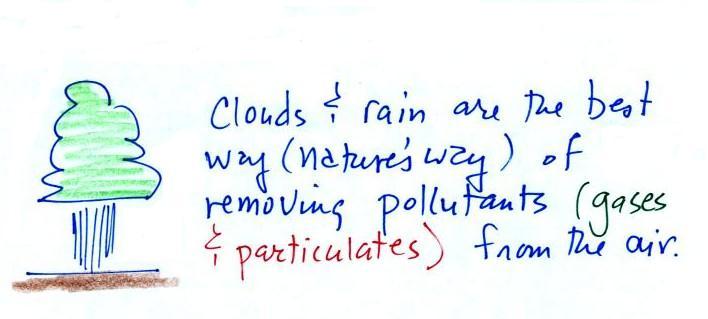 Clouds & rain are the best
way (nature's way) of
removing pollutants (gases
& particulates) from the air.